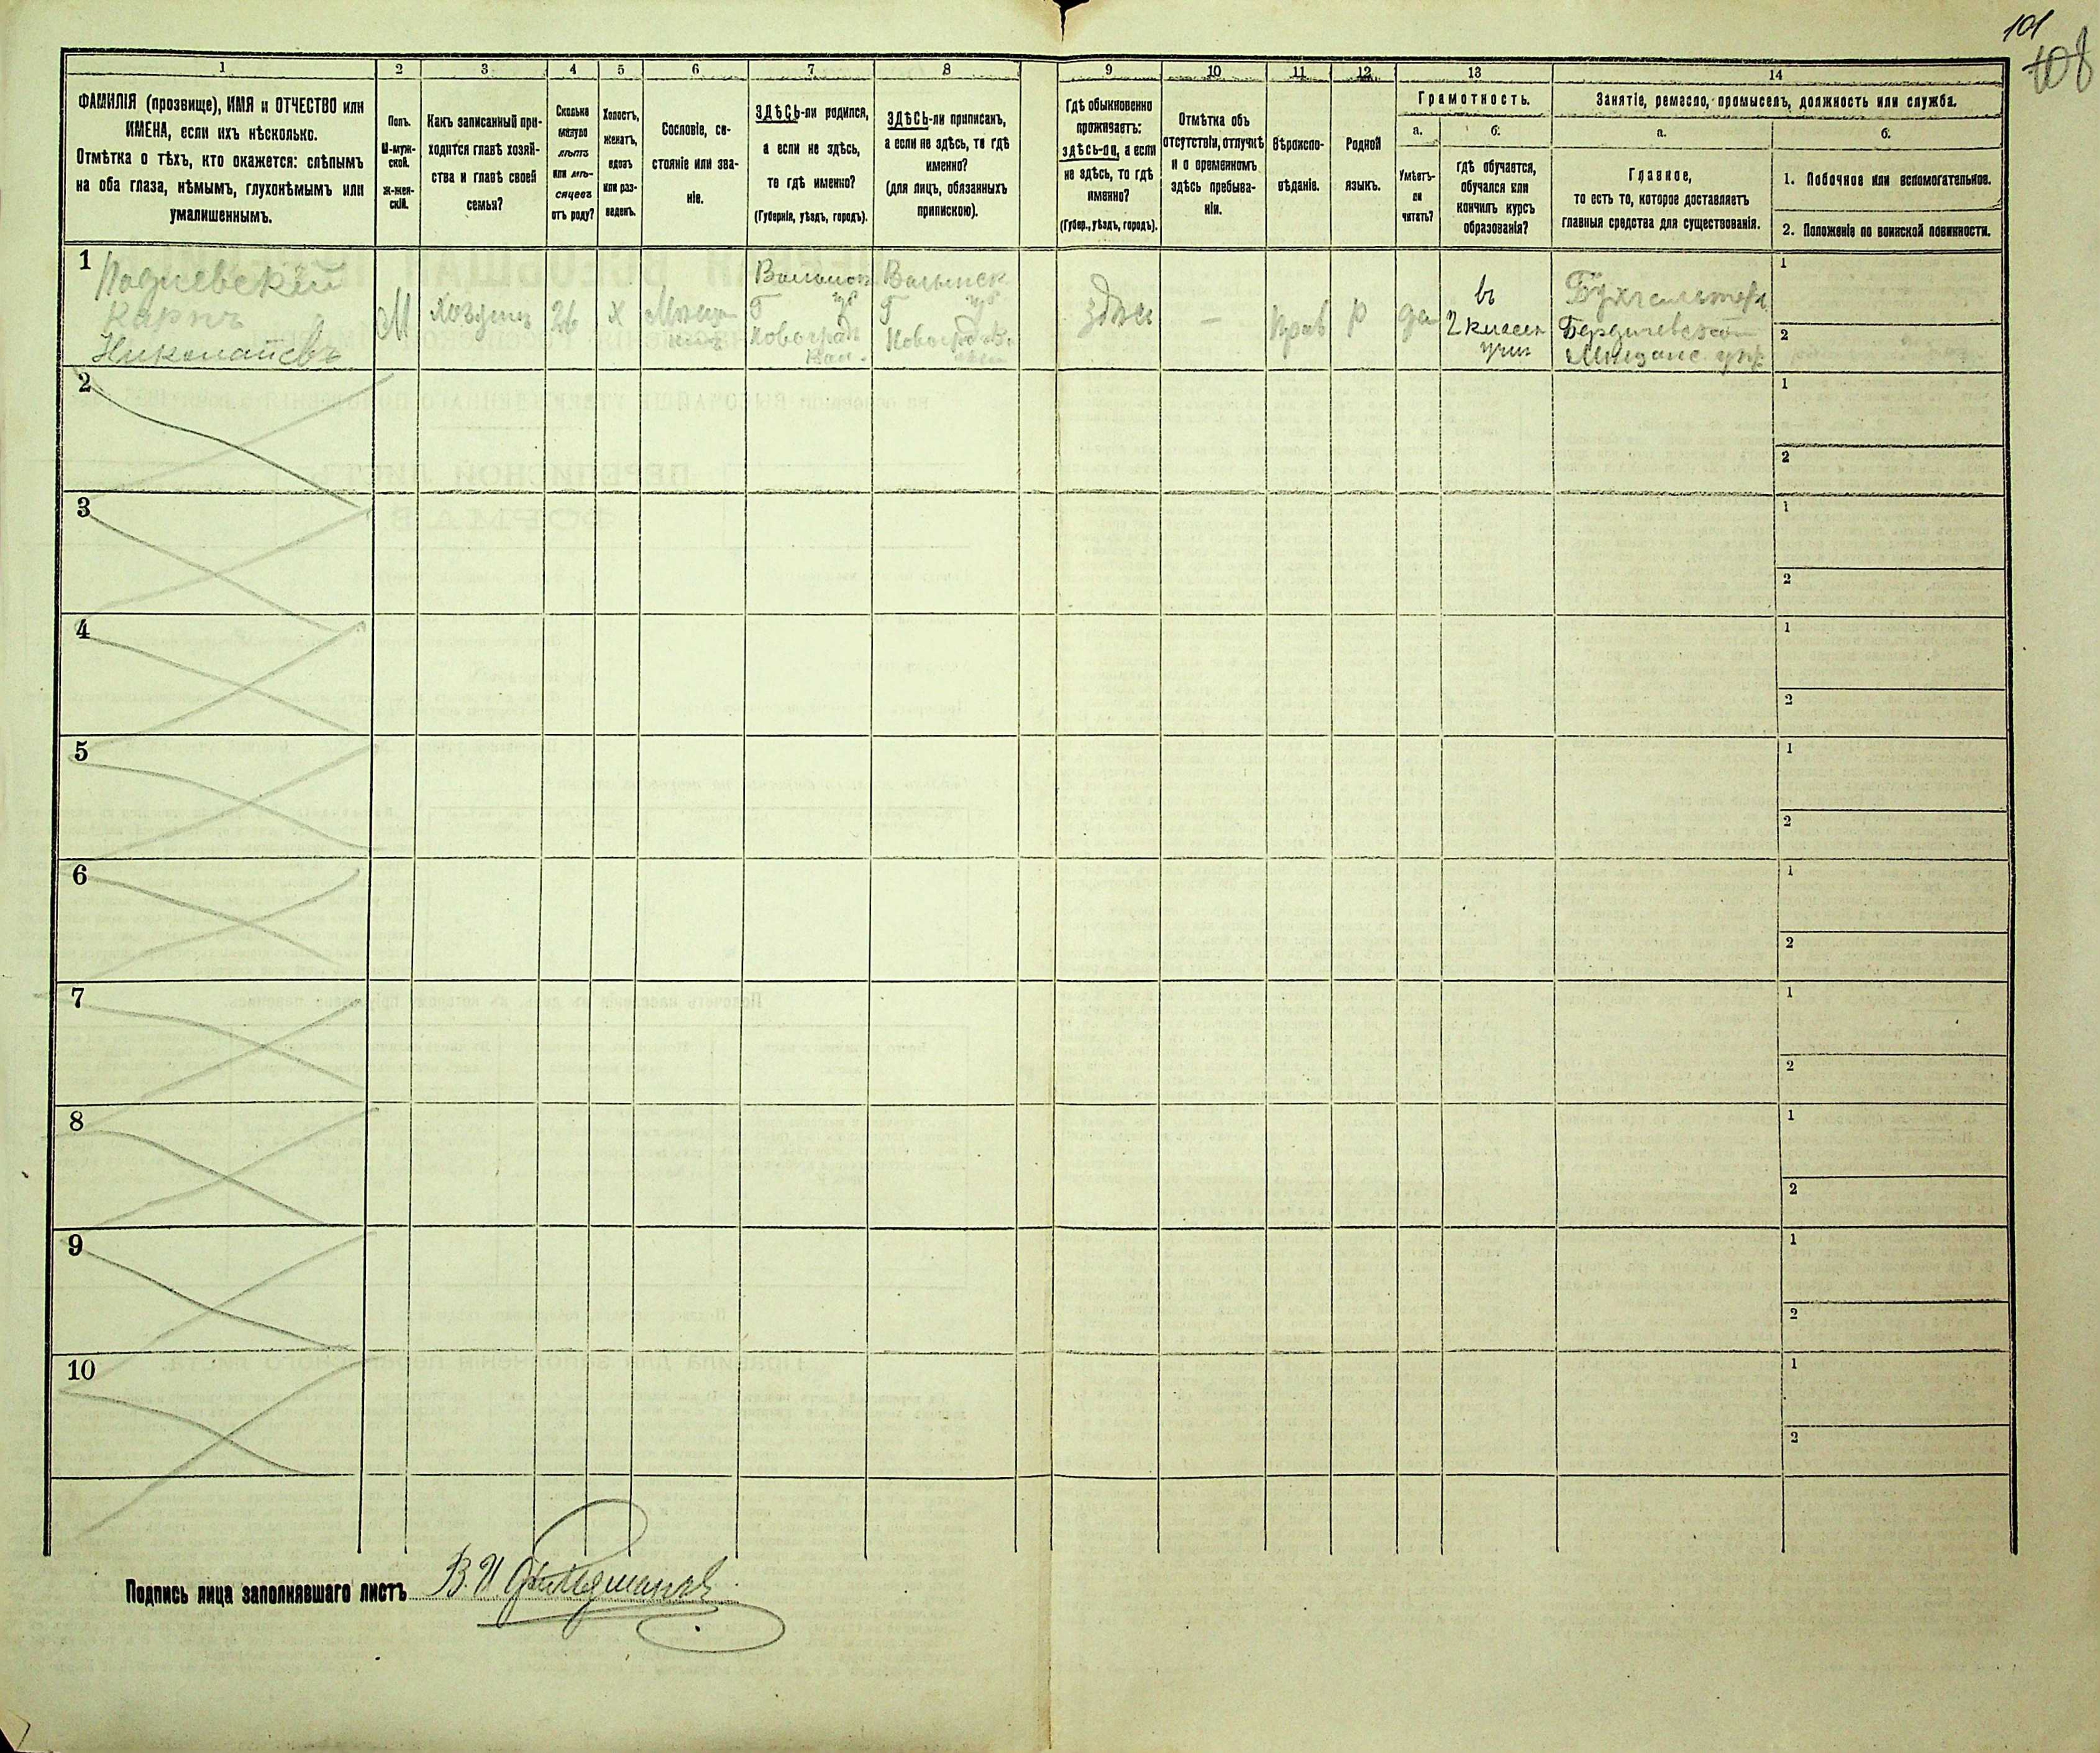 101
108
1
2
3
4
5
6
7
8
9
10
11
12
13
14
ФАМИЛІЯ (прозвище), ИМЯ и ОТЧЕСТВО или
ИМЕНА, если ихъ нѣсколько.
Отмѣтка о тѣхъ, кто окажется: слѣпымъ
на оба глаза, нѣмымъ, глухонѣмымъ или
умалишеннымъ.
Полъ.
М-муж-
ской.
Ж-жен-
скій.
Какъ записанный при-
ходится главѣ хозяй-
ства и главѣ своей
семьи?
Сколько
минуло
лѣтъ
или мѣ-
сяцевъ
отъ роду?
Холостъ,
женатъ,
вдовъ
или раз-
веденъ.
Сословіе, со-
стояніе или зва-
ніе.
ЗДѢСЬ-ли родился,
а если не здѣсь,
то гдѣ именно?
(Губернія, уѣздъ, городъ).
ЗДѢСЬ-ли приписанъ,
а если не здѣсь, то гдѣ
именно?
(для лицъ, обязанныхъ
припискою).
Гдѣ обыкновенно
проживаетъ:
здѣсь-ли, а если
не здѣсь, то гдѣ
именно?
(Губер., уѣздъ, городъ).
Отмѣтка объ
отсутствіи, отлучкѣ
и о временномъ
здѣсь пребыва-
ніи.
Вѣроиспо-
вѣданіе.
Родной
языкъ.
Грамотность.
а.
Умѣетъ-
ли
читать?
б.
гдѣ обучается,
обучался или
кончилъ курсъ
образованія?
Занятіе, ремесло, промыселъ, должность или служба.
а.
Главное,
то есть то, которое доставляетъ
главныя средства для существованія.
б.
1. Побочное или вспомогательное.
2. Положеніе по воинской повинности.
1
Карпъ
Николаевъ
М
Хозяинъ
26
Х
Волынск
Г
Новоградъ
Волынск
Г
Новоград
здѣсь
—
Прав
Р
да
въ
2 класен
учил
Бухгалтеръ
Бердичевской
Мѣщанс. упр.
1
2
2
1
2
3
1
2
4
1
2
5
1
2
6
1
2
7
1
2
8
1
2
9
1
2
10
1
2
Подпись лица заполнявшаго листъ В. И.